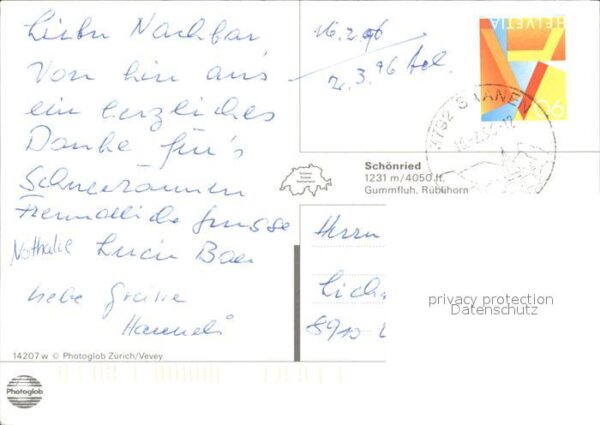 Lieber Nachbar
Von hier aus
ein herzliches
Danke für's
Schneeräumen
Freundliche Grüsse
Nathalie Lucia
liebe Grüsse
Hanneli
16.2.96
2.3.96 tel.
HELVETIA
90
3792 SAANEN
Schönried
1231 m/4050 ft.
Gummfluh, Rüblihorn
Herrn
8910
privacy protection
Datenschutz
14207 w © Photoglob Zürich/Vevey
Photoglob